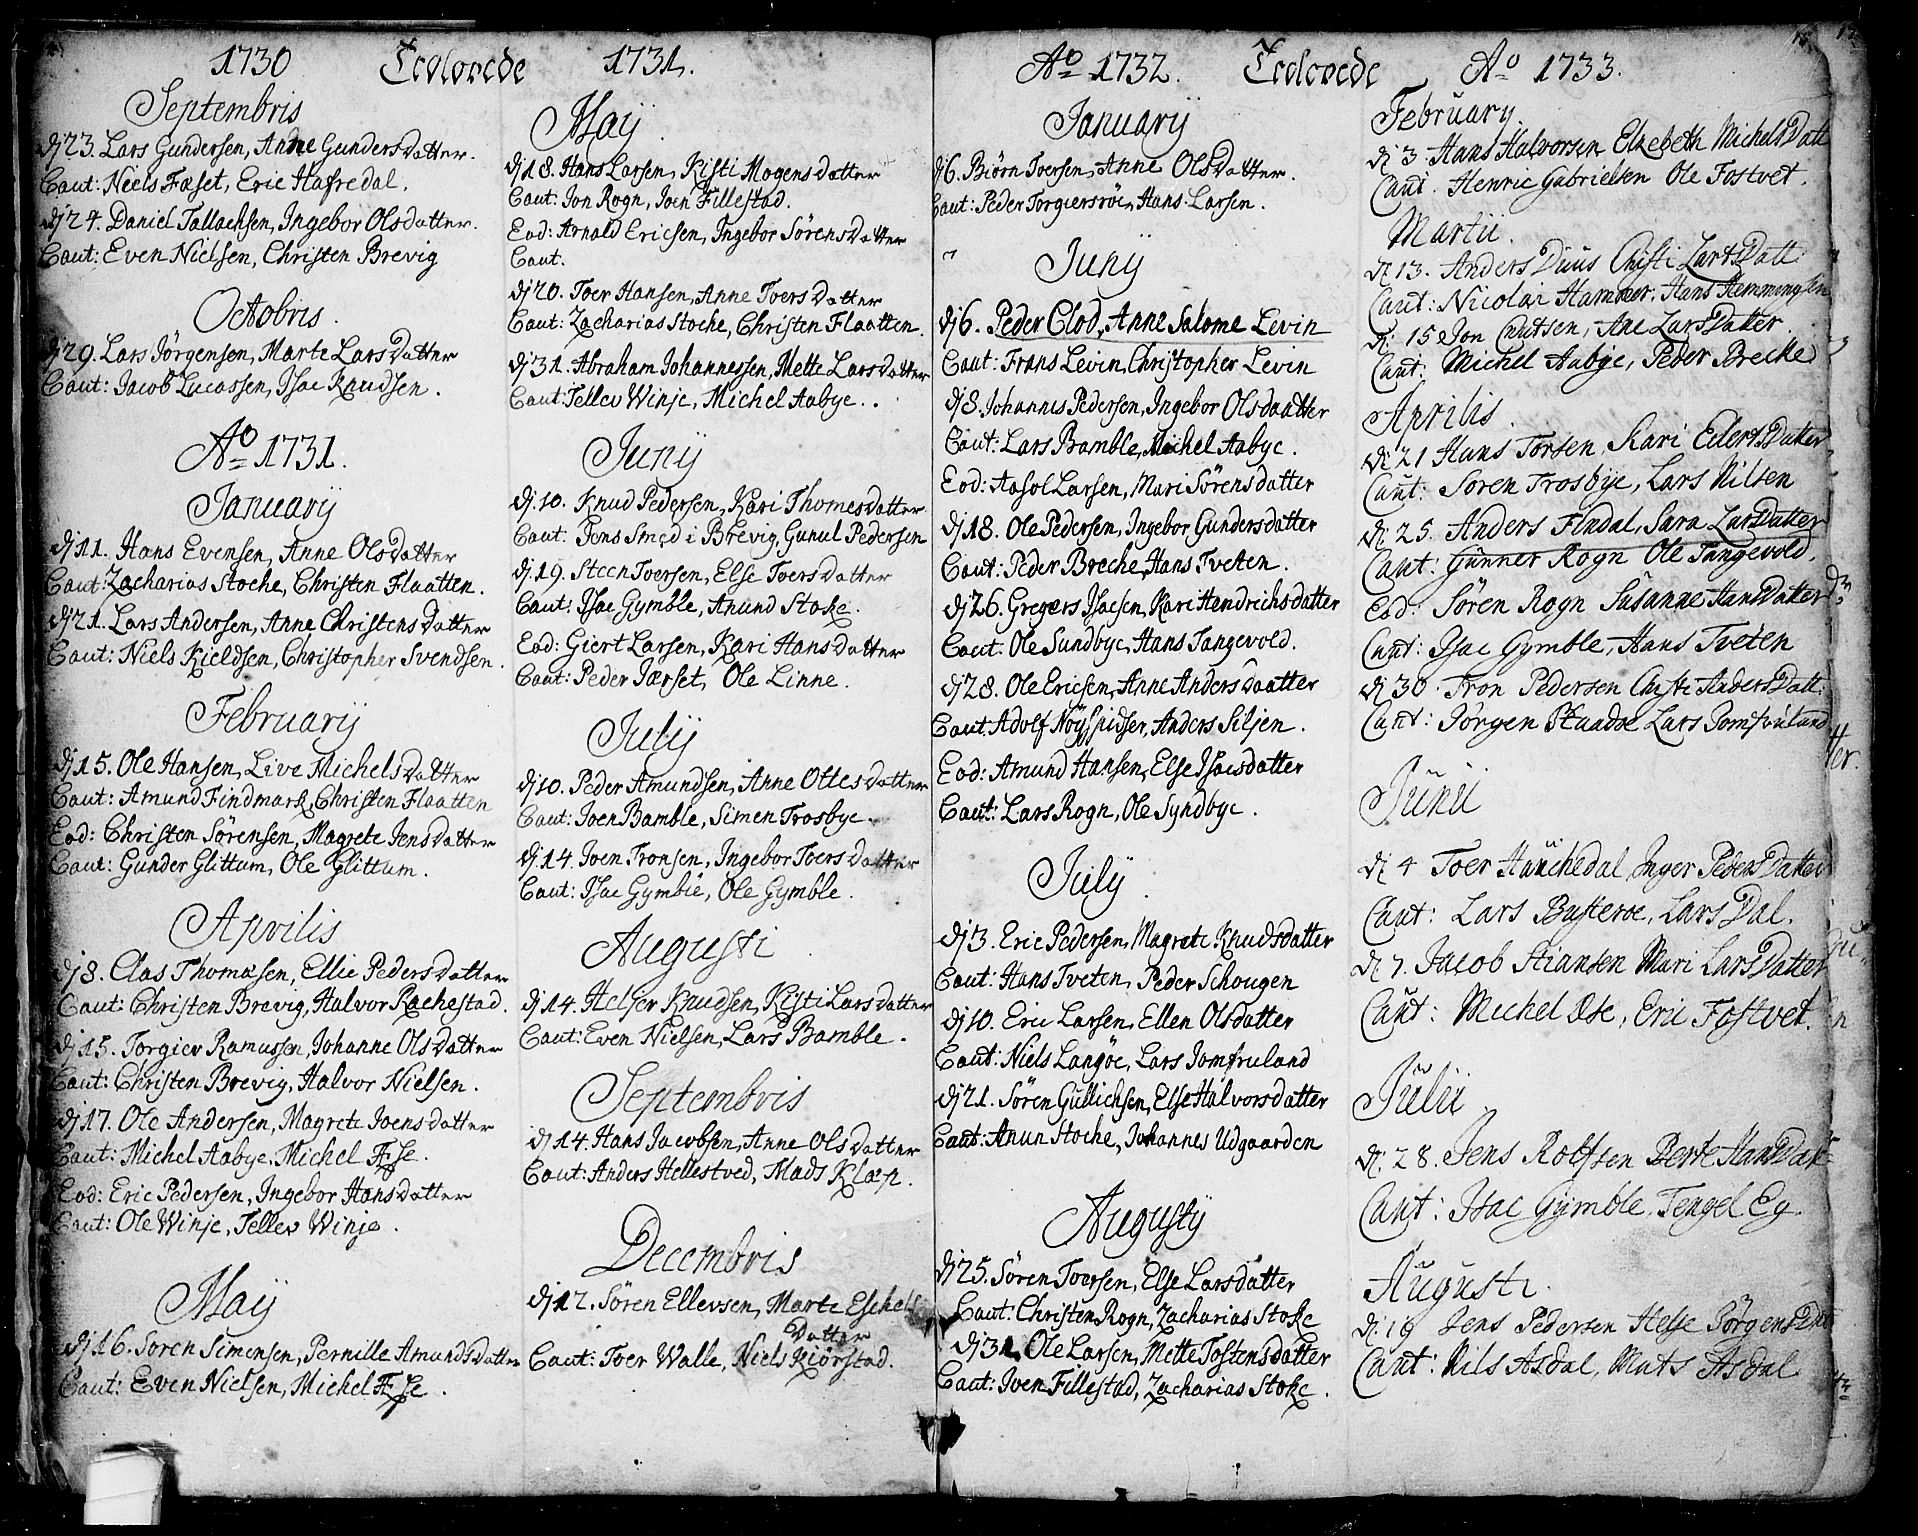 1730 Trolovede 1731.
Septembris
dj 23. Lars Gundersen, Anne Gunders datter.
Caut: Niels Fæset, Eric Hafredal.
dj 24. Daniel Tallachsen, Ingebor Ols datter.
Caut: Even Nielsen, Christen Brevig
Octobris.
dj 29. Lars Jörgensen, Marte Lars Datter
Caut: Jacob Lucassen, Isac Knudsen.
Aº 1731.
Januarij
dj 11. Hans Evensen, Anne Ols Datter
Caut: Zacharias Stoche, Christen Flaatten.
dj 21. Lars Andersen, Anne Christens Datter
Caut: Niels Kieldsen, Christopher Svendsen.
Februarij
dj 15. Ole Hansen, Live Michels Datter
Caut: Amund Findmark, Christen Flaatten
Eod: Christen Sörensen, Magrete Jens Datter
Caut: Gunder Glittum, Ole Glittum.
Aprilis
dj 8. Clas Thomæsen, Ellie Peders datter
Caut: Christen Brevig, Halvor Rachestad.
dj 15. Torgier Ramussen, Johanne Ols Datter
Caut: Christen Brevig, Halvor Nielsen.
dj 17. Ole Andersen, Magrete Joens datter
Caut: Michel Aabye, Michel Æse.
Eod: Eric Pedersen, Ingebor Hans datter
Caut: Ole Winje, Tellev Winje.
Maij
dj 16. Soren Simensen, Pernille Amunds Datter
Caut: Even Nielsen, Michel Æse.
Maij
dj 18. Hans Larsen, Kisti Mogens datter
Caut: Jon Rogn, Joen Fillestad.
Eod: Arnold Ericsen, Ingebor Sörens Datter
Caut.
dj 20. Toer Hansen, Anne Toers Datter
Caut: Zacharias Stoche, Christen Flaatten.
dj 31. Abraham Johannessen, Mette Lars datter
Caut: Tellev Winje, Michel Aabye.
Junij
dj. 10. Knud Pedersen, Kari Thomes datter
Caut: Jens Smed i Brevig, Gunul Pedersen
dj. 19. Steen Toersen, Else Toers Datter
Caut: Isac Gymble, Anund Stoke.
Eod: Giert Larsen, Kari Hans datter
Caut: Peder Jærset, Ole Linne.
Julij
dj 10. Peder Amundsen, Anne Ottes datter
Caut: Joen Bamble, Simen Trosbye.
dj 14. Joen Tronsen, Ingebor Toers datter
Caut: Isac Gymble, Ole Gymble.
Augusti
dj 14. Heljer Knudsen, Kisti Lars datter
Caut: Even Nielsen, Lars Bamble.
Septembris
dj 14. Hans Jacobsen, Anne Ols Datter
Caut: Anders Hellestved, Mads Klæp.
Decembris
dj 12. Sören Ellevsen, Marte Eschels
Datter
Caut: Toer Walle, Niels Kiörstad.
Aº 1732. Trolovede Aº 1733.
Januarij
dj 6. Biörn Toersen, Anne Ols Datter.
Caut: Peder Torgiersröe, Hans Larsen.
Junij
dj 6. Peder Clod, Anne Salome Levin
Caut: Frans Levin, Christopher Levin
dj 8. Johannes Pedersen, Ingebor Olsdaatter
Caut: Lars Bamble, Michel Aabye.
Eod: Aasol Larsen, Mari Sörensdatter
dj 18. Ole Pedersen, Ingebor Gundersdatter
Caut: Peder Breche, Hans Tveten.
dj 26. Gregers Isacsen, Kari Hendrichsdatter
Caut: Ole Sundbye, Hans Tangevold.
dj 28. Ole Ericsen, Anne Anders Daatter
Caut: Adolf Nöyspidser, Anders Siljen.
Eod: Amund Hansen, Else Isacsdatter
Caut: Lars Rogn, Ole Syndbye.
July
dj 3. Eric Pedersen, Magrete Knudsdatter
Caut: Hans Tveten, Peder Schougen
dj 10. Eric Larsen, Ellen Olsdatter
Caut: Niels Langöe, Lars Jomfruland
dj 21. Sören Gullichsen, Else Halvorsdatter
Caut: Anun Stoche, Johannes Udgaarden
Augusty
dj 25. Sören Toersen, Else Larsdatter
Caut: Christen Rogn, Zacharias Stoke
dj 31. Ole Larsen, Mette Tostensdatter
Caut: Joen Fillestad, Zacharias Stoke.
February.
di 3. Hans Halvorsen Elzebeth Michels Datt
Caut. Henric Gabrielsen Ole Fostvet.
Martii.
di 13. Anders Duus Christi Lars Datt:
Caut: Nicolai Hammer, Hans Hemmingsen
di 15 Jon Cnutsen, Ane Lars Datter.
Caut: Michel Aabye, Peder Brecke
Aprilis.
di 21 Hans Torsen, Kari Ederts Datter
Caut: Sören Trosbye, Lars Nilsen
di 25. Anders Findal, Sara Lars Datter
Caut: Gunner Rogn Ole Tangevold.
Eod: Sören Rogn Susanne Hans Datter
Caut: Isac Gymble, Hans Tveten
di 30. Tron Pedersen Christi Anders Datt:
Caut: Jörgen Lars Jomfruland
Junii
di 4 Toer Hauchedal Inger Peders Datter
Caut: Lars Busteroe, Lars Dal.
di 7. Jacob Stiansen Mari Lars Datter
Caut: Michel Ese, Eric Fostvet.
Julii
di. 28. Jens Rolfsen Berte Hans Dat
Caut: Isac Gymble, Tengel Eg.
Augusti.
di 19 Jens Pedersen Helje Jörgens Dat
Caut: Nils Asdal, Mats Asdal